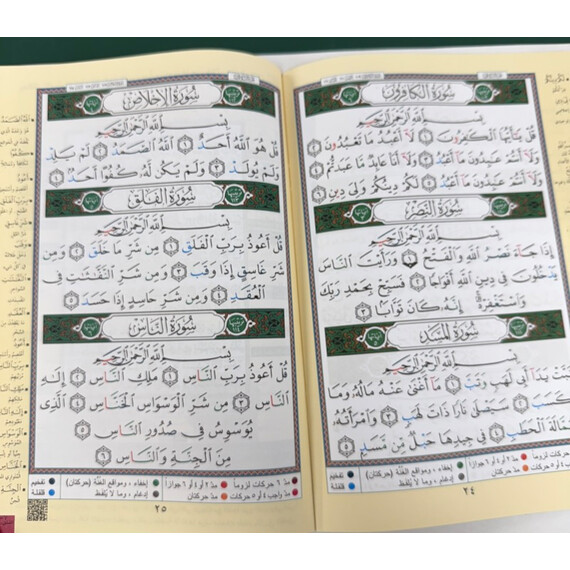 سورة الكافرون
بسم الله الرحمن الرحيم
قل يأيها الكفرون ١ لا أعبد ما تعبدون ٢
ولا أنتم عبدون ما أعبد ٣ ولا أنا عابد ما عبدتم ٤
ولا أنتم عبدون ما أعبد ٥ لكم دينكم ولى دين ٦
سورة النصر
بسم الله الرحمن الرحيم
إذا جاء نصر الله والفتح ١ ورأيت الناس
يدخلون فى دين الله أفواجا ٢ فسبح بحمد ربك
واستغفره إنه كان توابا ٣
سورة المسد
بسم الله الرحمن الرحيم
تبت يدا أبى لهب وتب ١ ما أغنى عنه ماله وما
كسب ٢ سيصلى نارا ذات لهب ٣ وامرأته
حمالة الحطب ٤ فى جيدها حبل من مسد ٥
مد ٦ حركات لزوما مد ٢ أو ٤ أو ٦ جوازا إخفاء، ومواقع الغنة (حركتان) تفخيم
مد واجب ٤ أو ٥ حركات مد حركتان إدغام، وما لا يلفظ قلقلة
٢٤
سورة الإخلاص
بسم الله الرحمن الرحيم
قل هو الله أحد ١ الله الصمد ٢ لم يلد
ولم يولد ٣ ولم يكن له كفوا أحد ٤
سورة الفلق
بسم الله الرحمن الرحيم
قل أعوذ برب الفلق ١ من شر ما خلق ٢ ومن
شر غاسق إذا وقب ٣ ومن شر النفثت فى
العقد ٤ ومن شر حاسد إذا حسد ٥
سورة الناس
بسم الله الرحمن الرحيم
قل أعوذ برب الناس ١ ملك الناس ٢ إله
الناس ٣ من شر الوسواس الخناس ٤ الذى
يوسوس فى صدور الناس ٥
من الجنة والناس ٦
مد ٦ حركات لزوما مد ٢ أو ٤ أو ٦ جوازا إخفاء، ومواقع الغنة (حركتان) تفخيم
مد واجب ٤ أو ٥ حركات مد حركتان إدغام، وما لا يلفظ قلقلة
٢٥